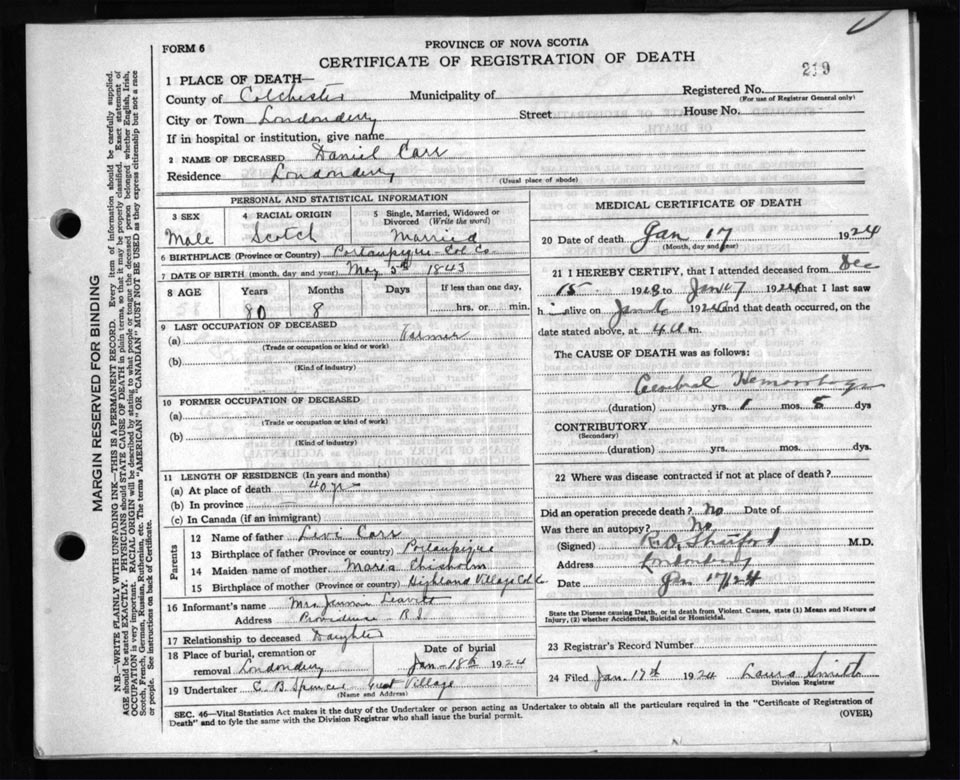 FORM 6
PROVINCE OF NOVA SCOTIA
CERTIFICATE OF REGISTRATION OF DEATH
219
1 PLACE OF DEATH—
County of Colchester Municipality of Registered No.
(For use of Registrar General only)
City or Town Londonderry Street House No.
If in hospital or institution, give name
2 NAME OF DECEASED Daniel Carr
Residence Londonderry
(Usual place of abode)
PERSONAL AND STATISTICAL INFORMATION
3 SEX 4 RACIAL ORIGIN 5 Single, Married, Widowed or Divorced (Write the word)
Male Scotch Married
6 BIRTHPLACE (Province or Country) Portaupique Col. Co.
7 DATE OF BIRTH (month, day and year) May 5th 1843
8 AGE Years Months Days If less than one day,
80 8 hrs. or min.
9 LAST OCCUPATION OF DECEASED
(a) Farmer
(Trade or occupation or kind or work)
(b)
(Kind of industry)
10 FORMER OCCUPATION OF DECEASED
(a)
(Trade or occupation or kind or work)
(b)
(Kind of industry)
11 LENGTH OF RESIDENCE (In years and months)
(a) At place of death 40 yr
(b) In province
(c) In Canada (if an immigrant)
Parents
12 Name of father Levi Carr
13 Birthplace of father (Province or country) Portaupique
14 Maiden name of mother Maria Chisholm
15 Birthplace of mother (Province or country) Highland Village Col. Co
16 Informant's name Mrs Jennie Leavitt
Address Providence R I
17 Relationship to deceased Daughter
18 Place of burial, cremation or removal Londonderry
Date of burial
Jan 18th 1924
19 Undertaker C. B. Spencer Great Village
(Name and Address)
MEDICAL CERTIFICATE OF DEATH
20 Date of death Jan 17 1924
(Month, day and year)
21 I HEREBY CERTIFY, that I attended deceased from Dec
15 1923 to Jan 17 1924 that I last saw
h i alive on Jan 192 and that death occurred, on the
date stated above, at 4 a m.
The CAUSE OF DEATH was as follows:
Cerebral Hemorrhage
(duration) yrs. 1 mos. 5 dys
CONTRIBUTORY
(Secondary)
(duration) yrs. mos. dys.
22 Where was disease contracted if not at place of death?
Did an operation precede death? No Date of
Was there an autopsy? No
(Signed) R. O. Shatford M.D.
Address Londonderry
Date Jan 17/24
State the Disease causing Death, or in death from Violent Causes, state (1) Means and Nature of
Injury, (2) whether Accidental, Suicidal or Homicidal.
23 Registrar's Record Number
24 Filed Jan. 17th 1924 Laura Smith
Division Registrar
SEC. 46—Vital Statistics Act makes it the duty of the Undertaker or person acting as Undertaker to obtain all the particulare required in the "Certificate of Registration of
Death" and to fyle the same with the Division Registrar who shall issue the burial permit.
(OVER)
MARGIN RESERVED FOR BINDING
N.B.—WRITE PLAINLY WITH UNFADING INK—THIS IS A PERMANENT RECORD. Every item of information should be carefully supplied.
AGE should be stated EXACTLY. PHYSICIANS should STATE CAUSE OF DEATH in plain terms, so that it may be properly classified. Exact statement of
OCCUPATION is very important. RACIAL ORIGIN will be described by stating to what people or tongue the deceased person belonged whether English, Irish,
Scotch, French, German, Russian, Ruthenian, etc. The terms "AMERICAN" OR "CANADIAN" MUST NOT BE USED as they express citizenship but not a race
or people. See instructions on back of Certificate.